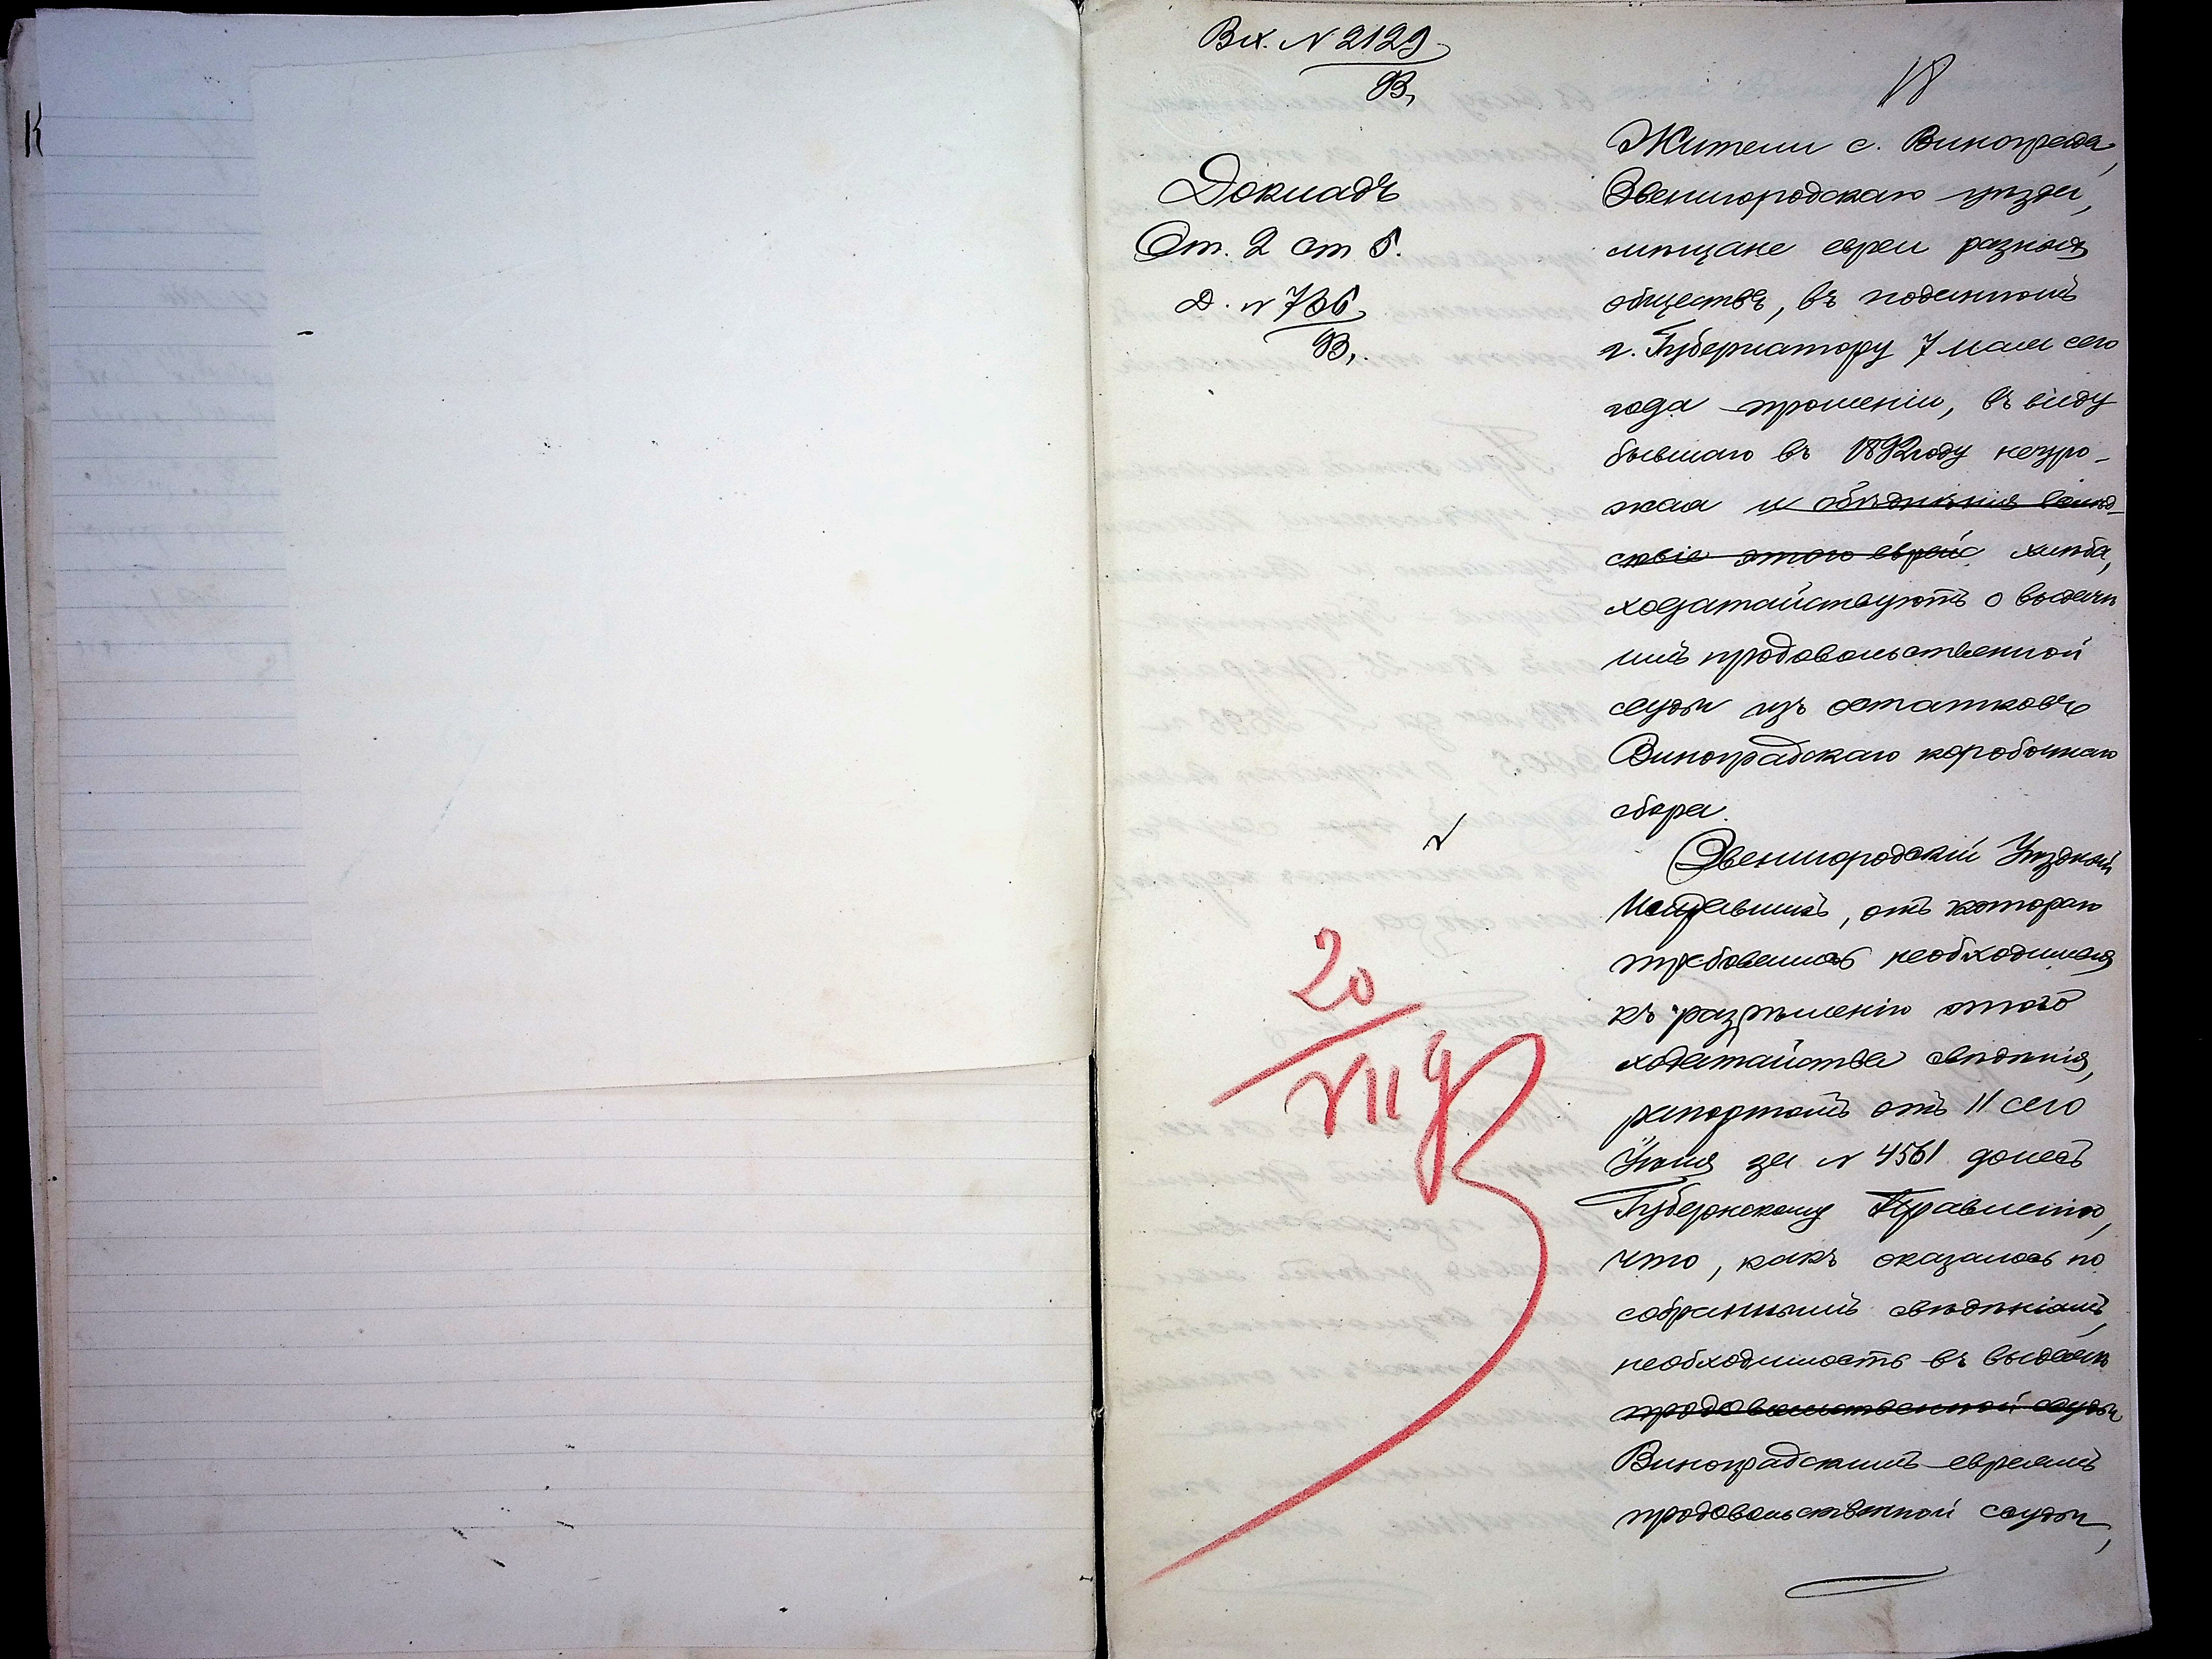 Вх. N 2129
93.
18
Докладъ
От. 2 ст 5.
Д. N 736
93.
Жители с. Винограда,
Звенигородскаго уѣзда,
мѣщане евреи разныхъ
обществъ, въ поданномъ
г. Губернатору 7 мая сего
года прошеніи, въ виду
бывшаго въ 1892 году неуро-
жая и обѣднѣнія вслѣд-
ствіе этого евреевъ хлѣба,
ходатайствуютъ о выдачѣ
имъ продовольственной
ссуды изъ остатковъ
Виноградскаго коробочнаго
сбора.
Звенигородскій Уѣздный
Исправникъ, отъ котораго
требовались необходимыя
къ разрѣшенію этого
ходатайства свѣдѣнія,
рапортомъ отъ 11 сего
Іюня за N 4561 донесъ
Губернскому Правленію,
что, какъ оказалось по
собраннымъ свѣдѣніямъ,
необходимость въ выдачѣ
продовольственной ссуды
Виноградскимъ евреямъ
продовольственной ссуды,
20
VII 93